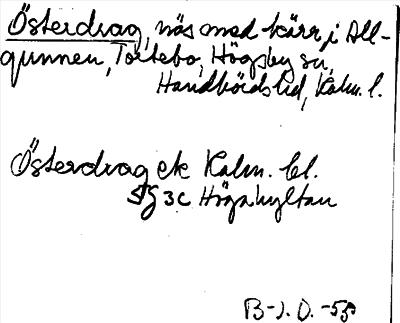 Österdrag, näs med kärr, i All-
gunnen, Tortebo, Högsby sn,
Handbörds hd, Kalm. l.
Österdrag ek Kalm. bl.
5G 3c Högahyltan
B-J. O. -55